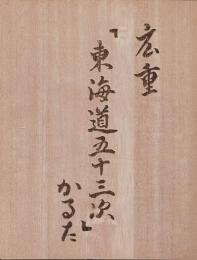 広重
「東海道五十三次
かるた」